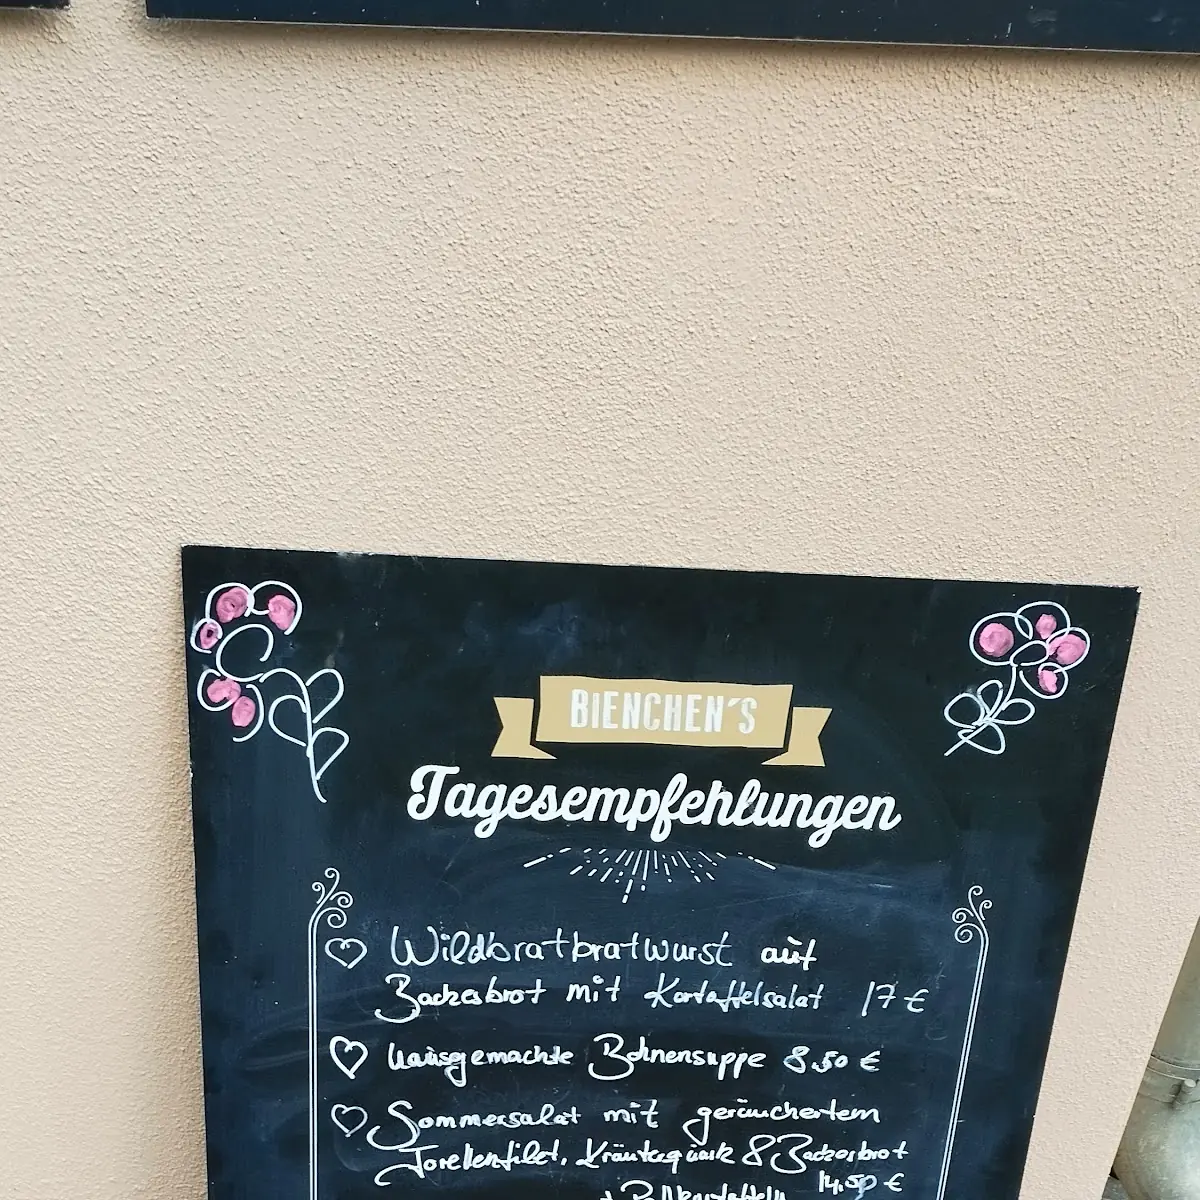 BIENCHEN'S
Tagesempfehlungen
Wildbratbratwurst auf
Backesbrot mit Kartoffelsalat 17 €
hausgemachte Bohnensuppe 8,50 €
Sommersalat mit geräuchertem
Forellenfilet, Kräuterquark & Backesbrot
14,50 €
+